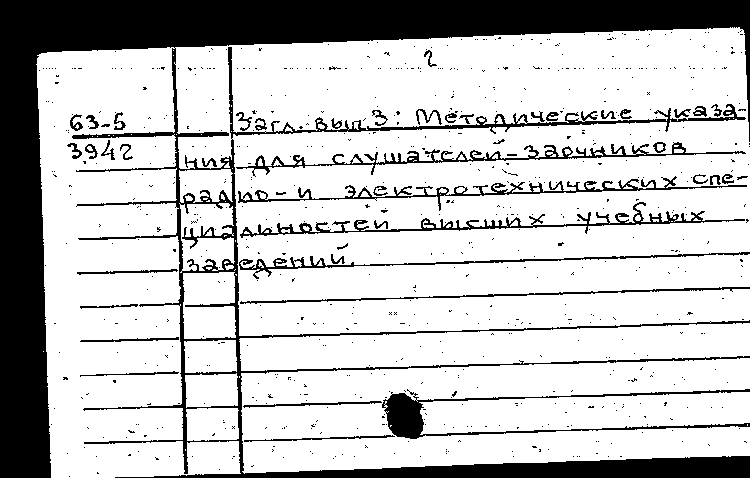 2
63-5 Загл. вып. 3: Методические указа-
3942 ния для слушателей-заочников
радио- и электротехнических спе-
циальностей высших учебных
заведений.